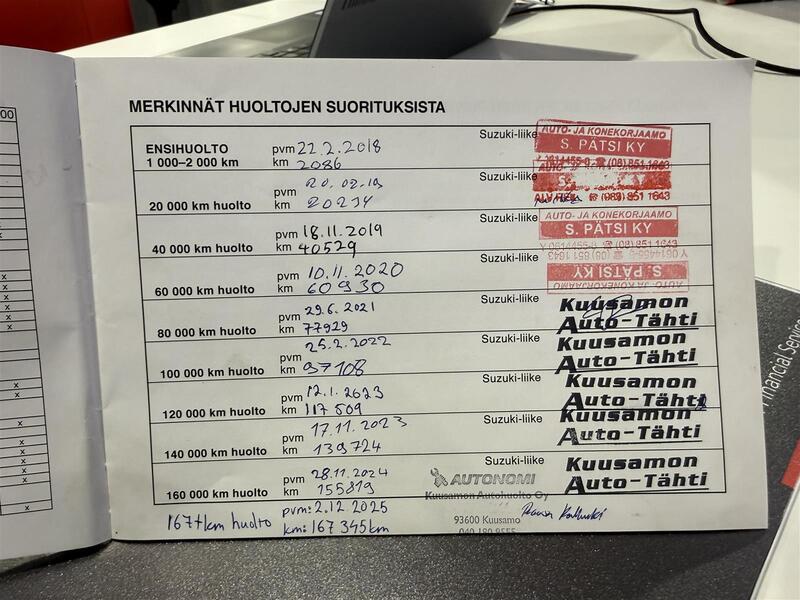 00
x
x
x
x
x
x
x
x
x
x
x
x
x
MERKINNÄT HUOLTOJEN SUORITUKSISTA
ENSIHUOLTO pvm 22.2.2018 Suzuki-liike AUTO- JA KONEKORJAAMO
1 000–2 000 km km 2086 S. PÄTSI KY
Y 0614455-8 ☎ (08) 851 1643
pvm 20.02.19 Suzuki-liike AUTO- JA KONEKORJAAMO
20 000 km huolto km 20234
☎ (08) 851 1643
pvm 18.11.2019 Suzuki-liike AUTO- JA KONEKORJAAMO
40 000 km huolto km 40529 S. PÄTSI KY
Y 0614455-8 ☎ (08) 851 1643
pvm 10.11.2020 Suzuki-liike Y 0614455-8 ☎ (08) 851 1643
60 000 km huolto km 60930 S. PÄTSI KY
AUTO- JA KONEKORJAAMO
pvm 29.6.2021 Suzuki-liike Kuusamon
80 000 km huolto km 77929 Auto-Tähti
pvm 25.2.2022 Suzuki-liike Kuusamon
100 000 km huolto km 97108 Auto-Tähti
pvm 12.1.2023 Suzuki-liike Kuusamon
120 000 km huolto km 117509 Auto-Tähti
pvm 17.11.2023 Suzuki-liike Kuusamon
140 000 km huolto km 139724 Auto-Tähti
pvm 28.11.2024 Suzuki-liike Kuusamon
160 000 km huolto km 155819 Auto-Tähti
AUTONOMI
Kuusamon Autohuolto Oy
167tkm huolto pvm: 2.12 2025 93600 Kuusamo
km: 167 345km 040 180 8555
Financial Servic